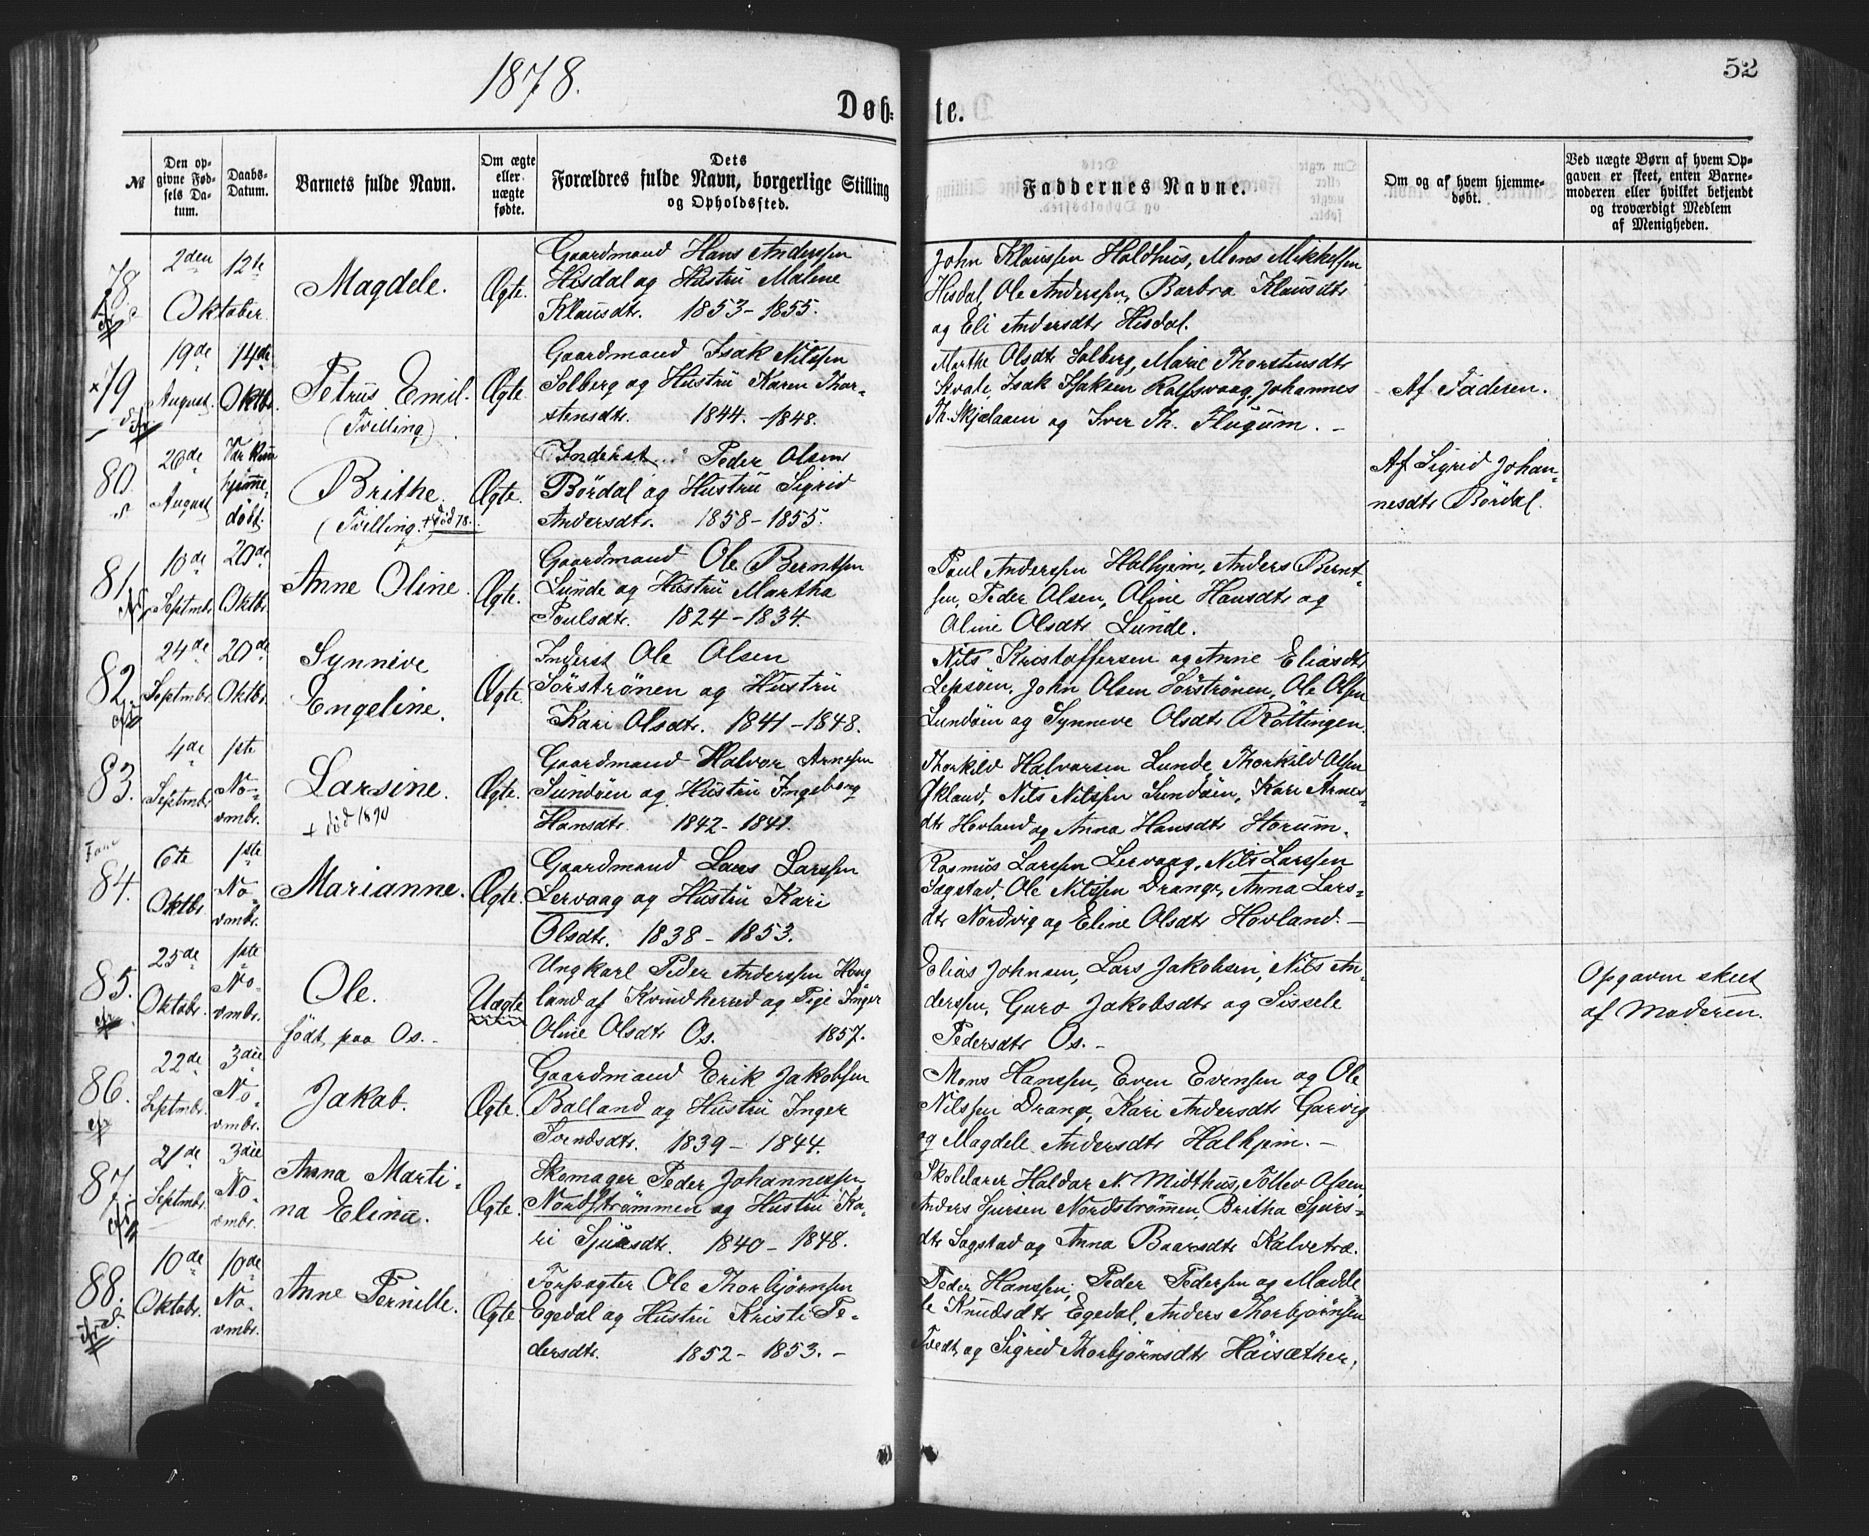 1878.
52
Døb-
te.
№
Den opgivne Fødsels Datum.
Daabs-Datum.
Barnets fulde Navn.
Om ægte eller uægte fødte.
Dets Forældres fulde Navn, borgerlige Stilling og Opholdssted.
Faddernes Navne.
Om og af hvem hjemmedøbt.
Ved uægte Børn af hvem Opgaven er skeet, enten Barnemoderen eller hvilket bekjendt og troværdigt Medlem af Menigheden.
78
2den 12te
Oktober.
Magdele.
Ægte.
Gaardmand Hans Anderssen
Hisdal og Hustru Malene
Klausdtr. 1853 - 1855.
John Klaussen Haldhus, Mons Mikkelsen
Hisdal, Ole Anderssen, Barbra Klausdtr
og Eli Andersdtr Hisdal.
79
19de August.
14de Oktbr.
Petrus Emil.
(Tvilling)
Ægte
Gaardmand Isak Nilssen
Solberg og Hustru Karen Thor-
stensdtr. 1844. - 1848.
Marthe Olsdtr Solberg, Marie Thorstensdtr
Isak Isaksen Rolfsvaag, Johannes
Th. Skjelaaen og Iver Th. Flugum. -
Af Faderen.
80.
26de August
Var kun hjemme-døbt.
Brithe.
(Tvilling.) + død 78.
Ægte.
Inderst Peder Olsen
Bördal og Hustru Sigrid
Andersdtr. 1858 - 1855.
Af Sigrid Johan-
nesdtr Bördal.
81.
Septmbr.
20de Oktbr.
Anne Oline.
Ægte.
Gaardmand Ole Berntsen
Lunde og Hustru Martha
Poulsdtr. 1824 - 1834.
Poul Anderssen Halhjem, Anders Bernt-
sen, Peder Olsen, Oline Hansdtr og
Oline Olsdtr Lunde.
82.
24de Septmbr.
20de Oktbr.
Synneve
Engeline.
Ægte.
Inderst Ole Olsen
Sörströnen og Hustru
Kari Olsdtr. 1841 - 1848.
Nils Kristoffersen og Anne Eliasdtr
Lepsöen, John Olsen Sörströnen, Ole Olsen
Sundöen og Synneve Olsdtr Röttingen.
83.
4de Septmbr.
1ste No-vmbr.
Larsine.
+ död 1890
Ægte.
Gaardmand Halvor Arnesen
Sundöen og Hustru Ingeborg
Hansdtr. 1842 - 1841.
Thorkild Halvorsen Lunde, Thorkild Olsen
Ökland, Nils Nilssen Sundöen, Kari Arnes-
dtr Hovland og Anna Hansdtr Storum.
Fane
84.
6te Oktbr.
1ste No-vmbr.
Marianne.
Ægte.
Gaardmand Lars Larssen
Lervaag og Hustru Kari
Olsdtr. 1838 - 1853.
Rasmus Larssen Lervaag, Nils Larssen
Sagstad, Ole Nilssen Drange, Anna Lars-
dtr Nordvig og Eline Olsdtr Hovland. -
85.
25de Oktobr.
1ste No-vmbr.
Ole.
født paa Os. -
Uægte
Ungkarl Peder Anderssen Haug-
land af Kvindherred og Pige Inger
Oline Olsdtr Os. 1857.
Elias Johnsen, Lars Jakobsen, Nils An-
derssen, Guro Jakobsdtr og Sissele
Pedersdtr Os. -
Opgaven skeet
af Moderen.
86.
22de Septmbr.
3die No-vmbr.
Jakob.
Ægte.
Gaardmand Erik Jakobsen
Balland og Hustru Inger
Svendsdtr. 1839 - 1844.
Mons Hanssen, Even Evensen og Ole
Nilssen Drange, Kari Andersdtr Garvig
og Magdele Andersdtr Halhjem. -
87.
21de Septmbr.
3die No-vmbr.
Anna Marti-
na Elina.
Ægte.
Skomager Peder Johannessen
Nordströmmen og Hustru Ka-
ri Sjursdtr. 1840 - 1848.
Skolelærer Haldor N. Midthus, Tollev Olsen,
Anders Sjursen Nordströmmen, Britha Sjurs-
dtr Sagstad og Anna Baarsdtr Kalvetræ.
88.
10de Oktobr.
10de No-vmbr.
Anne Pernille.
Ægte
Forpagter Ole Thorbjørnsen
Egedal og Hustru Kristi Pe-
dersdtr. 1852 - 1853. -
Peder Hanssen, Peder Pederssen og Madde-
le Knudsdtr Egedal, Anders Thorbjørnsen
Tvedt og Sigrid Thorbjørnsdtr Haisæther.